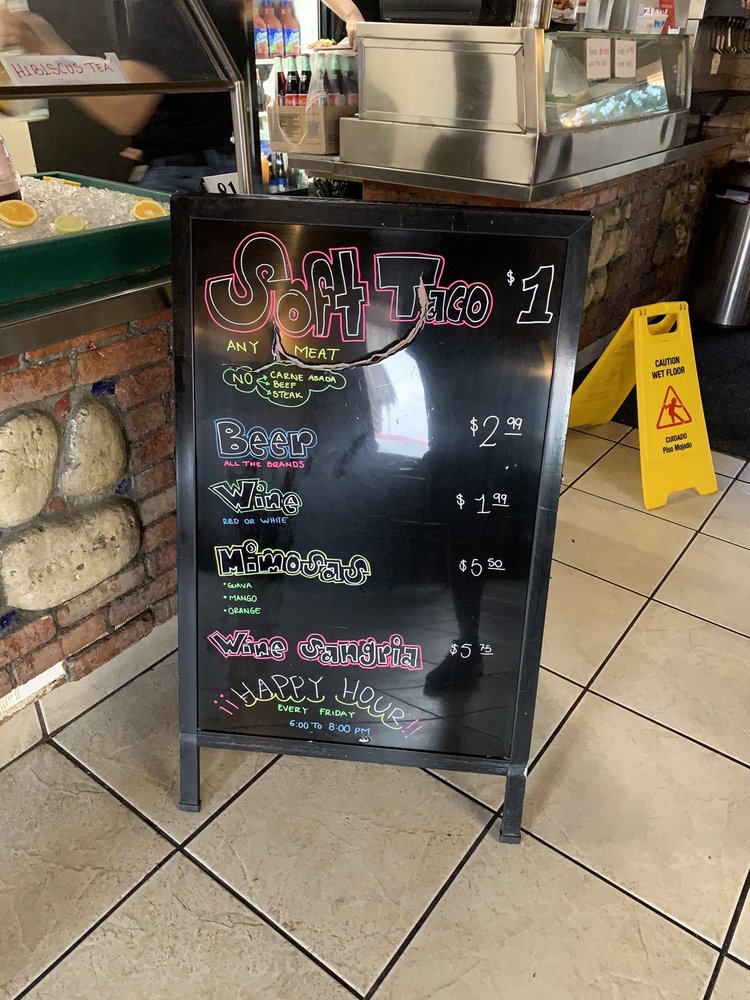 HIBISCUS TEA
Soft Taco $1
ANY MEAT
NO CARNE ASADA
BEEF
STEAK
Beer $2.99
ALL THE BRANDS
Wine $1.99
RED OR WHITE
Mimosas $5.50
• GUAVA
• MANGO
• ORANGE
Wine Sangria $5.75
¡¡HAPPY HOUR!!
EVERY FRIDAY
6:00 TO 8:00 PM
CAUTION
WET FLOOR
CUIDADO
Piso Mojado